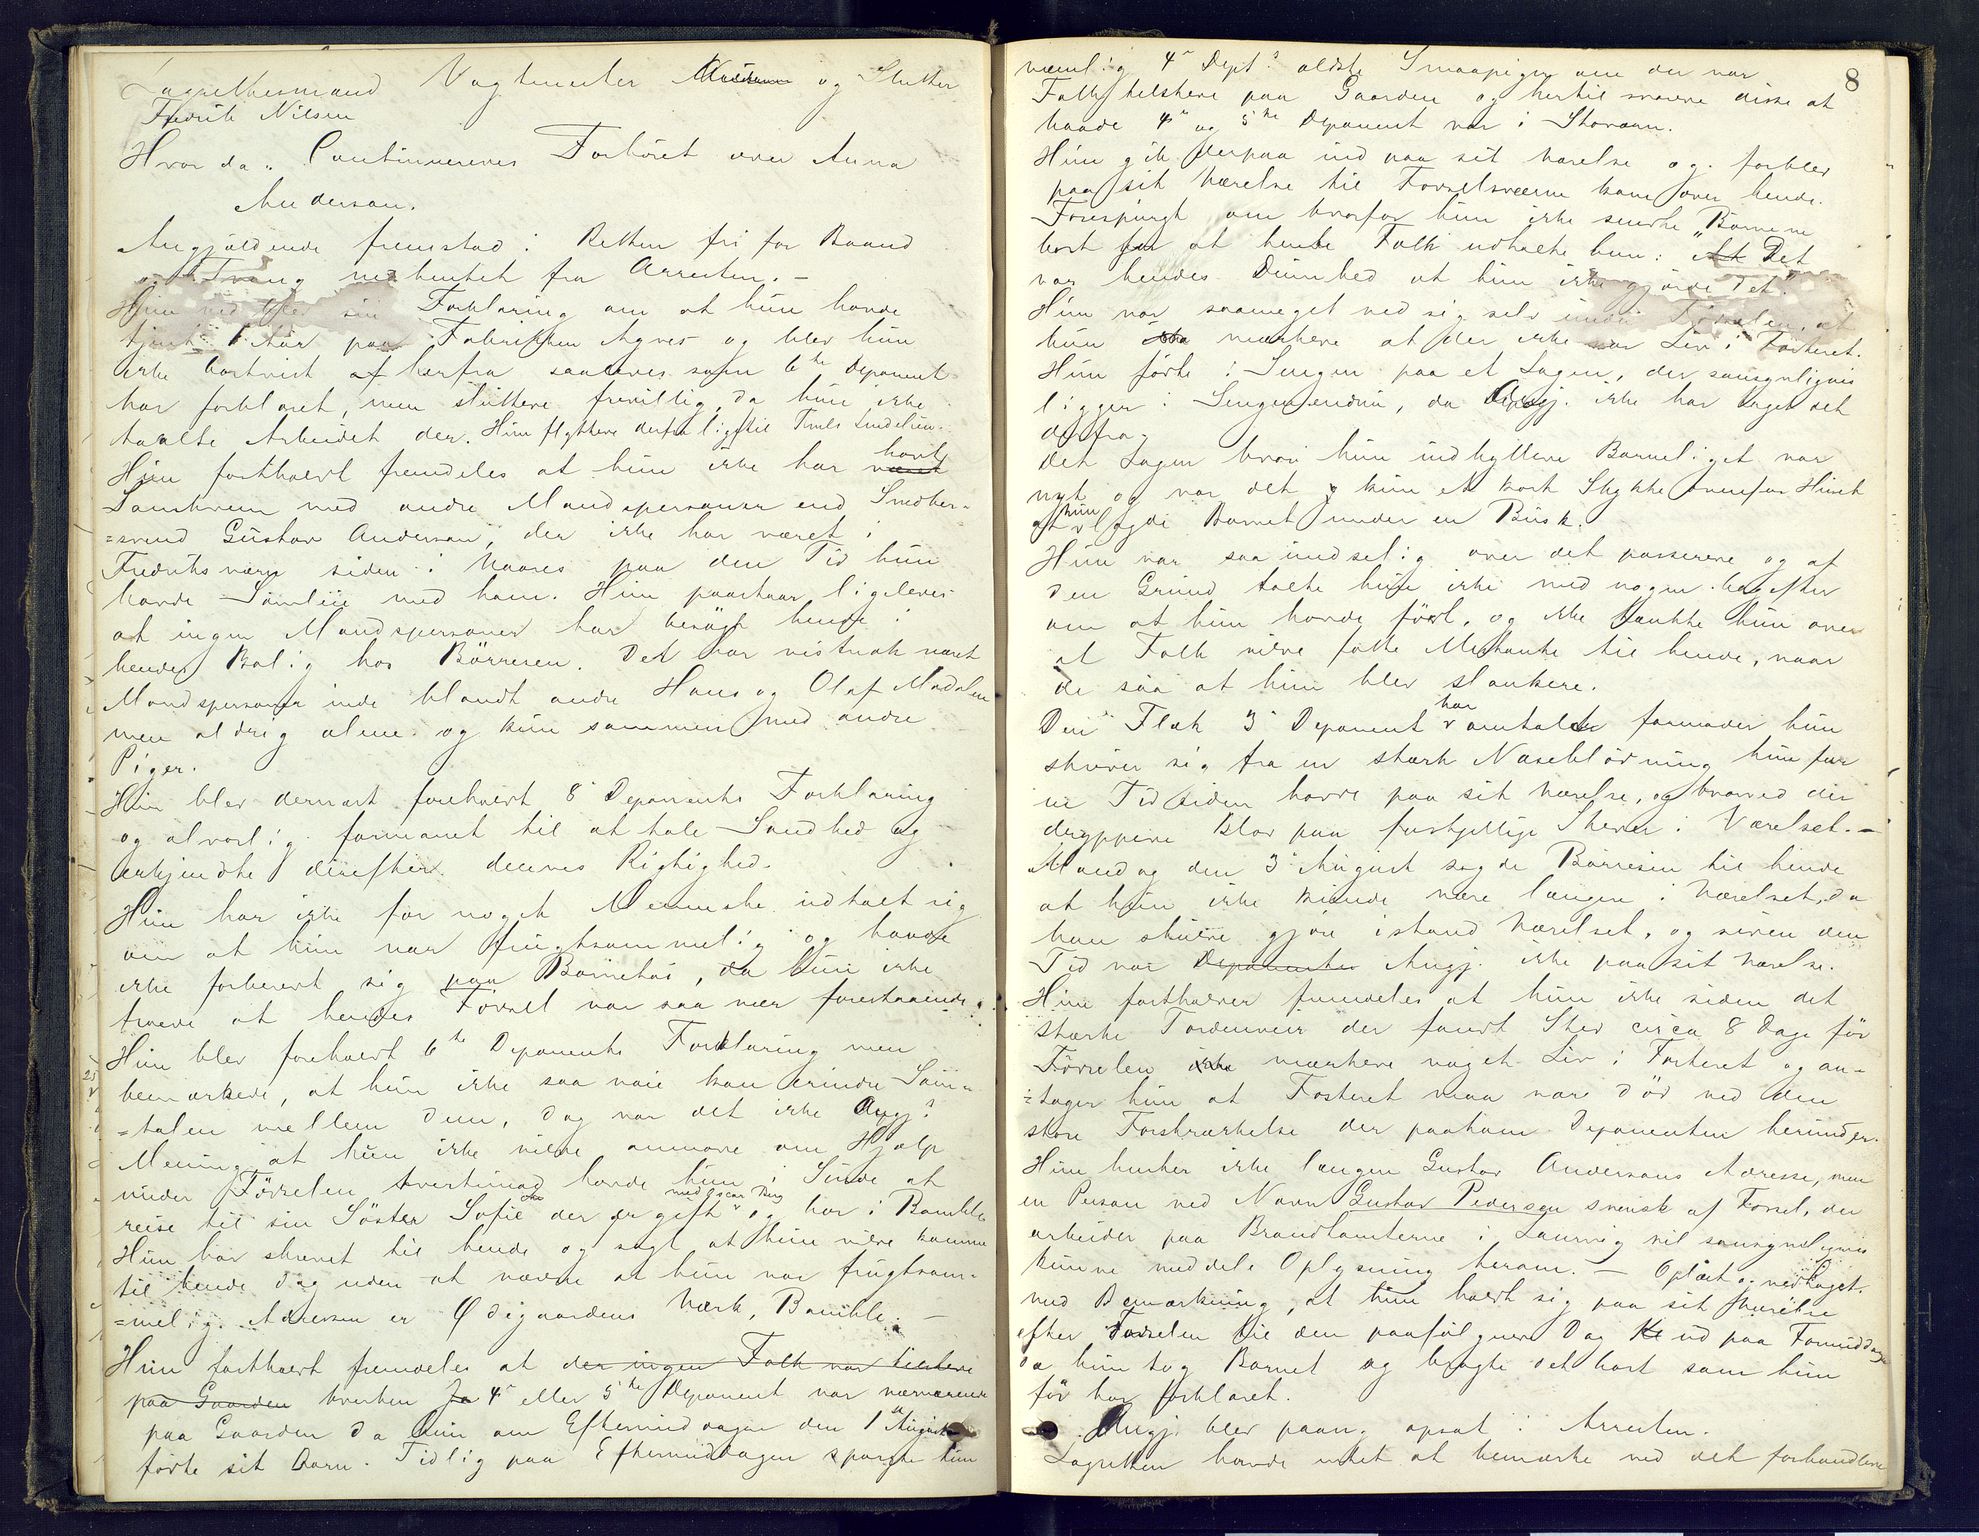 Lagrettesmænd Vagtmester og Slutter
Fredrik Nilsen
Hvor da: Continueredes Forhöret over Anna
Anderson.
Angjældende fremstod i Retten fri for Baand
og Tvang nedhentet fra Arresten. –
Hun ved blev sin Forklaring om at hun havde
tjent 1 Aar paa Fabrikken Agnes og blev hun
ikke bortvist af herfra saaledes som 6te Deponent
har forklaret, men sluttede frivillig, da hun ikke
taalte Arbeidet der. Hun flyttede derfra lige til
Hun fastholdt fremdeles at hun ikke har været havt
Samkvem med andre Mandspersoner end Smedker-
=svend Gustav Anderson, der ikke har været i
Fredriksværn siden i Vaares paa den Tid hun
havde Samleie med ham. Hun paastaar ligeledes
at ingen Mandspersoner har besögt hende i
hendes Bolig hos Börresen. Det har vistnok været
Mandspersoner inde blandt andre Hans og Olaf Madalen
men aldrig alene og kun sammen med andre
Piger.
Hun blev dernæst foreholdt 8de Deponents Forklaring
og alvorlig formanet til at tale Sandhed og
erkjendte derefter dennes Rigtighed.
Hun har ikke for noget Menneske udtalt sig
om at hun var frugtsommelig og havde
ikke forberedt sig paa Barnetöi, da hun ikke
troede at hendes Försel var saa nær forestaaende.
Hun blev foreholdt 6te Deponents Forklaring men
bemærkede, at hun ikke saa nöie kan erindre Sam-
=talen mellem dem, dog var det ikke Angj.s
Mening at hun ikke vilde anmode om Hjælp
under Förselen tvertimod havde hun i Sinde at
reise til sin Söster Sofie der er gift med Oscar og bor i Bamble
Hun har skrevet til hende og sagt at hun vilde komme
til hende dog uden at nævne at hun var frugtsom-
=melig. Adressen er Ødegaardens Værk, Bamble. –
Hun fastholdt fremdeles at der ingen Folk var tilstede
paa Gaarden hverken 4de eller 5te Deponent var nærværende
paa Gaarden da hun om Eftermiddagen den 1ste August
födte sit Barn. Tidlig paa Eftermiddagen spurgte hun
8
nemlig 4de Dept.s ældste Smaapiger om der var
Folk tilstede paa Gaarden og hertil svarede disse at
baade 4de og 5te Deponent var i Skoven.
Hun gik derpaa ind paa sit Værelse og forblev
paa sit Værelse til Förselsveerne kom over hende.
Forespurgt om hvorfor hun ikke sendte Börnene
bort for at hente Folk udtalte hun: "At Det
var hendes Dumhed at hun ikke gjorde det".
Hun var saameget ved sig selv under Förselen, at
hun ikke mærkede at der ikke var Liv i Fosteret.
Hun födte i Sengen paa et Lagen, der sansynligvis
ligger i Sengen endnu, da Angj. ikke har taget det
derfra.
Det Lagen hvori hun indhyllede Barneliget var
nyt og var det kun et kort Stykke ovenfor Huset
at hun lagde Barnet under en Busk.
Hun var saa undselig over det passerede og af
den Grund talte hun ikke med nogen bagefter
om at hun havde födt, og ikke tænkte hun over
at Folk vilde fatte Mistanke til hende, naar
de saa at hun blev slankere.
Den Flæk 3de Deponent har omtalt formoder hun
skriver sig fra en stærk Næseblödning hun for
en Tid siden havde paa sit Værelse, og hvorved der
dryppede Blod paa forskjellige Steder i Værelset. –
Mandag den 3de August sagde Börresen til hende
at hun ikke kunde være længer i Værelset, da
han skulde gjöre istand Værelset, og siden den
Tid var Deponenten Angj. ikke paa sit Værelse.
Hun fastholder fremdeles at hun ikke siden det
stærke Tordenveir der fandt Sted circa 8 Dage för
Förselen ikke mærkede noget Liv i Fosteret og an-
=tager hun at Fosteret maa være död ved den
store Forskrækkelse der paakom Deponenten herunder.
Hun husker ikke længer Gustav Andersons Adresse, men
en Person ved Navn Gustav Pederson svensk af Födsel, der
arbeider paa Brandtomterne i Laurvig vil sansynligvis
kunne meddele Oplysning herom. – Oplæst og vedtaget
med Bemærkning, at hun holdt sig paa sit Værelse
efter Förselen til den paafölgende Dag ud paa Formiddagen
da hun tog Barnet og bragte det bort som hun
för har forklaret.
Angj. blev paany opsat i Arresten.
Lagretten havde intet at bemærke ved det forhandlede